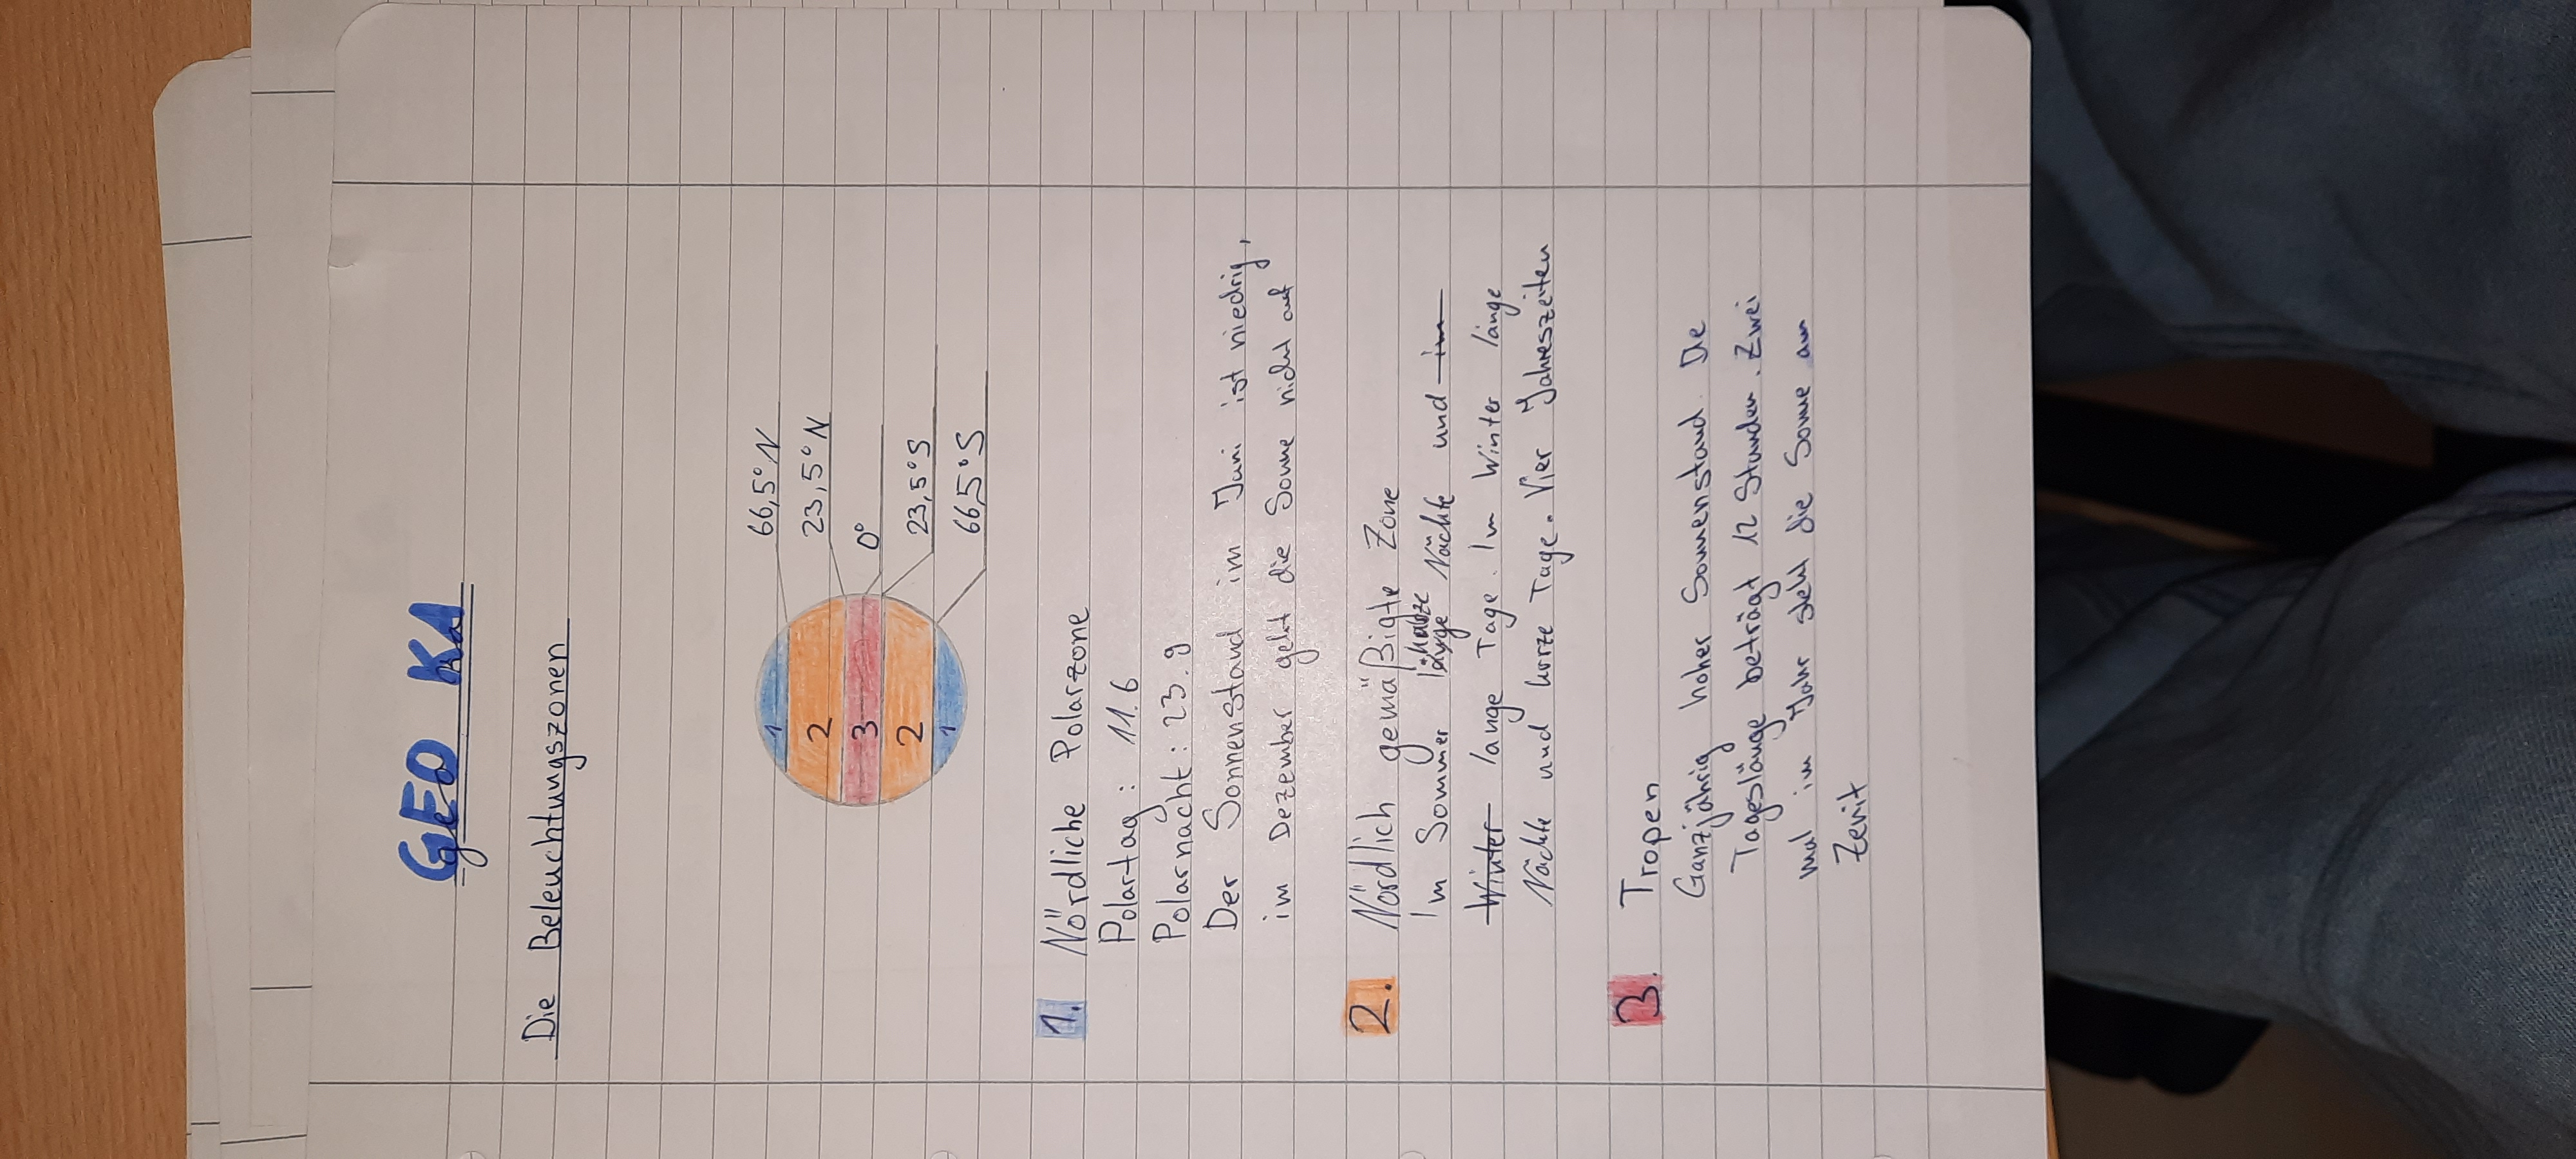 GEO KA
geo ka
Die Beleuchtungszonen
1
2
3
2
1
66,5° N
23,5° N
0°
23,5° S
66,5° S
1. Nördliche Polarzone
Polartag: 11.6
Polarnacht: 23.9
Der Sonnenstand im Juni ist niedrig,
im Dezember geht die Sonne nicht auf
2. Nördlich gemäßigte Zone
Im Sommer kurze Nächte und im
Winter lange Tage. Im Winter länge
Nächte und kurze Tage. Vier Jahreszeiten
3. Tropen
Ganzjährig hoher Sonnenstand. Die
Tageslänge beträgt 12 Stunden. Zwei
mal im Jahr steht die Sonne am
Zenit